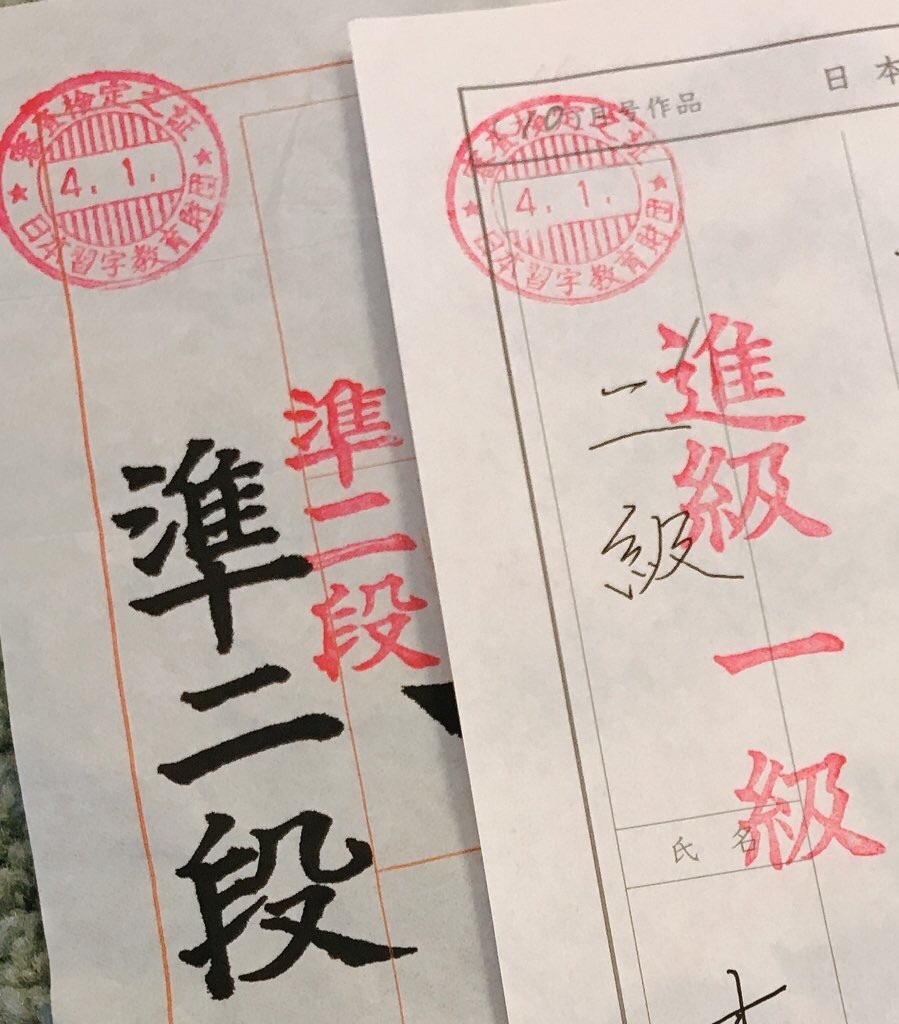 審査検定之証
4.1.
日本習字教育財団
準二段
準二段
審査検定之証
4.1.
日本習字教育財団
10月号作品
日本
二級
進級一級
氏名